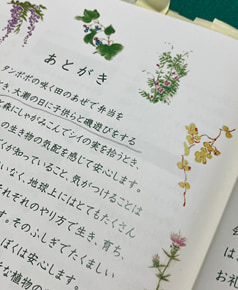 あとがき
タンポポの咲く田のあぜで弁当を
き、大潮の日に子供らと磯遊びをする
森にしゃがみこんでシイの実を拾うとき、
の生き物の気配を感じて安心します。
くがおっていること、気がつけることは
いなく、地球上にはとてもたくさん
それぞれのやり方で生き、育ち、
す。そのふしぎでたくましい
ぼくは安心します。
な植物の
は
お礼